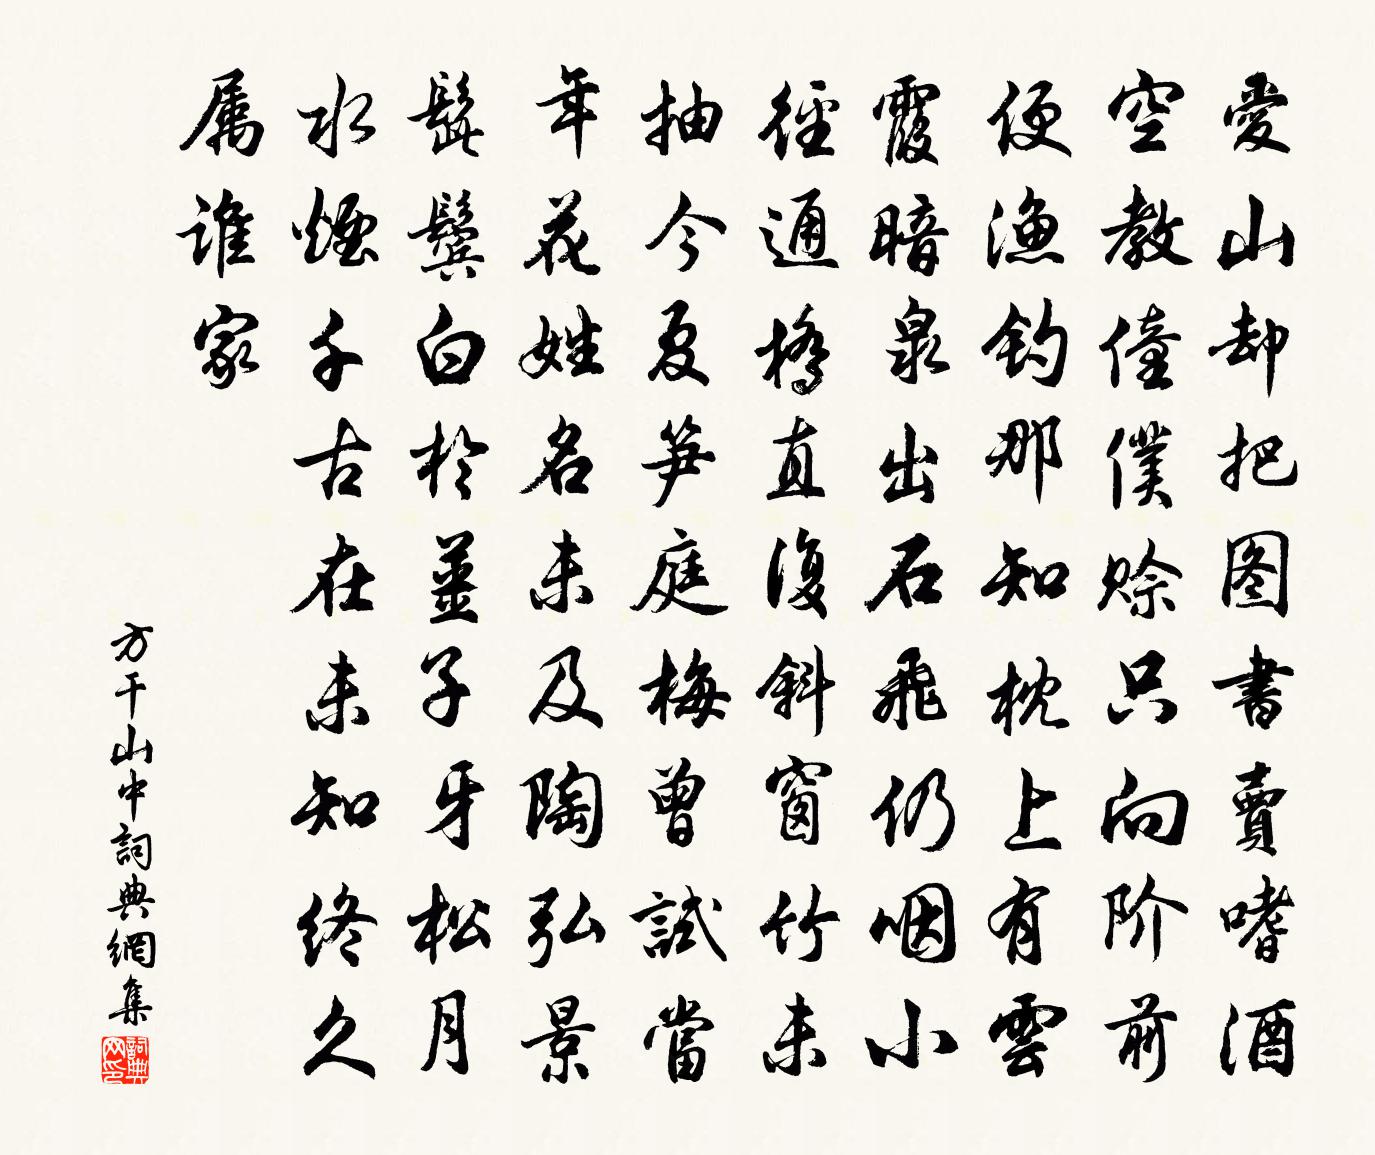 愛山却把图書賣嗜酒
空教僮僕賒只向阶前
便漁釣那知枕上有雲
霞暗泉出石飛仍咽小
徑通橋直復斜窗竹未
抽今夏笋庭梅曾試當
年花姓名未及陶弘景
髭鬢白於薑子牙松月
水煙千古在未知終久
属谁家
方干山中詞典網集
詞典网印